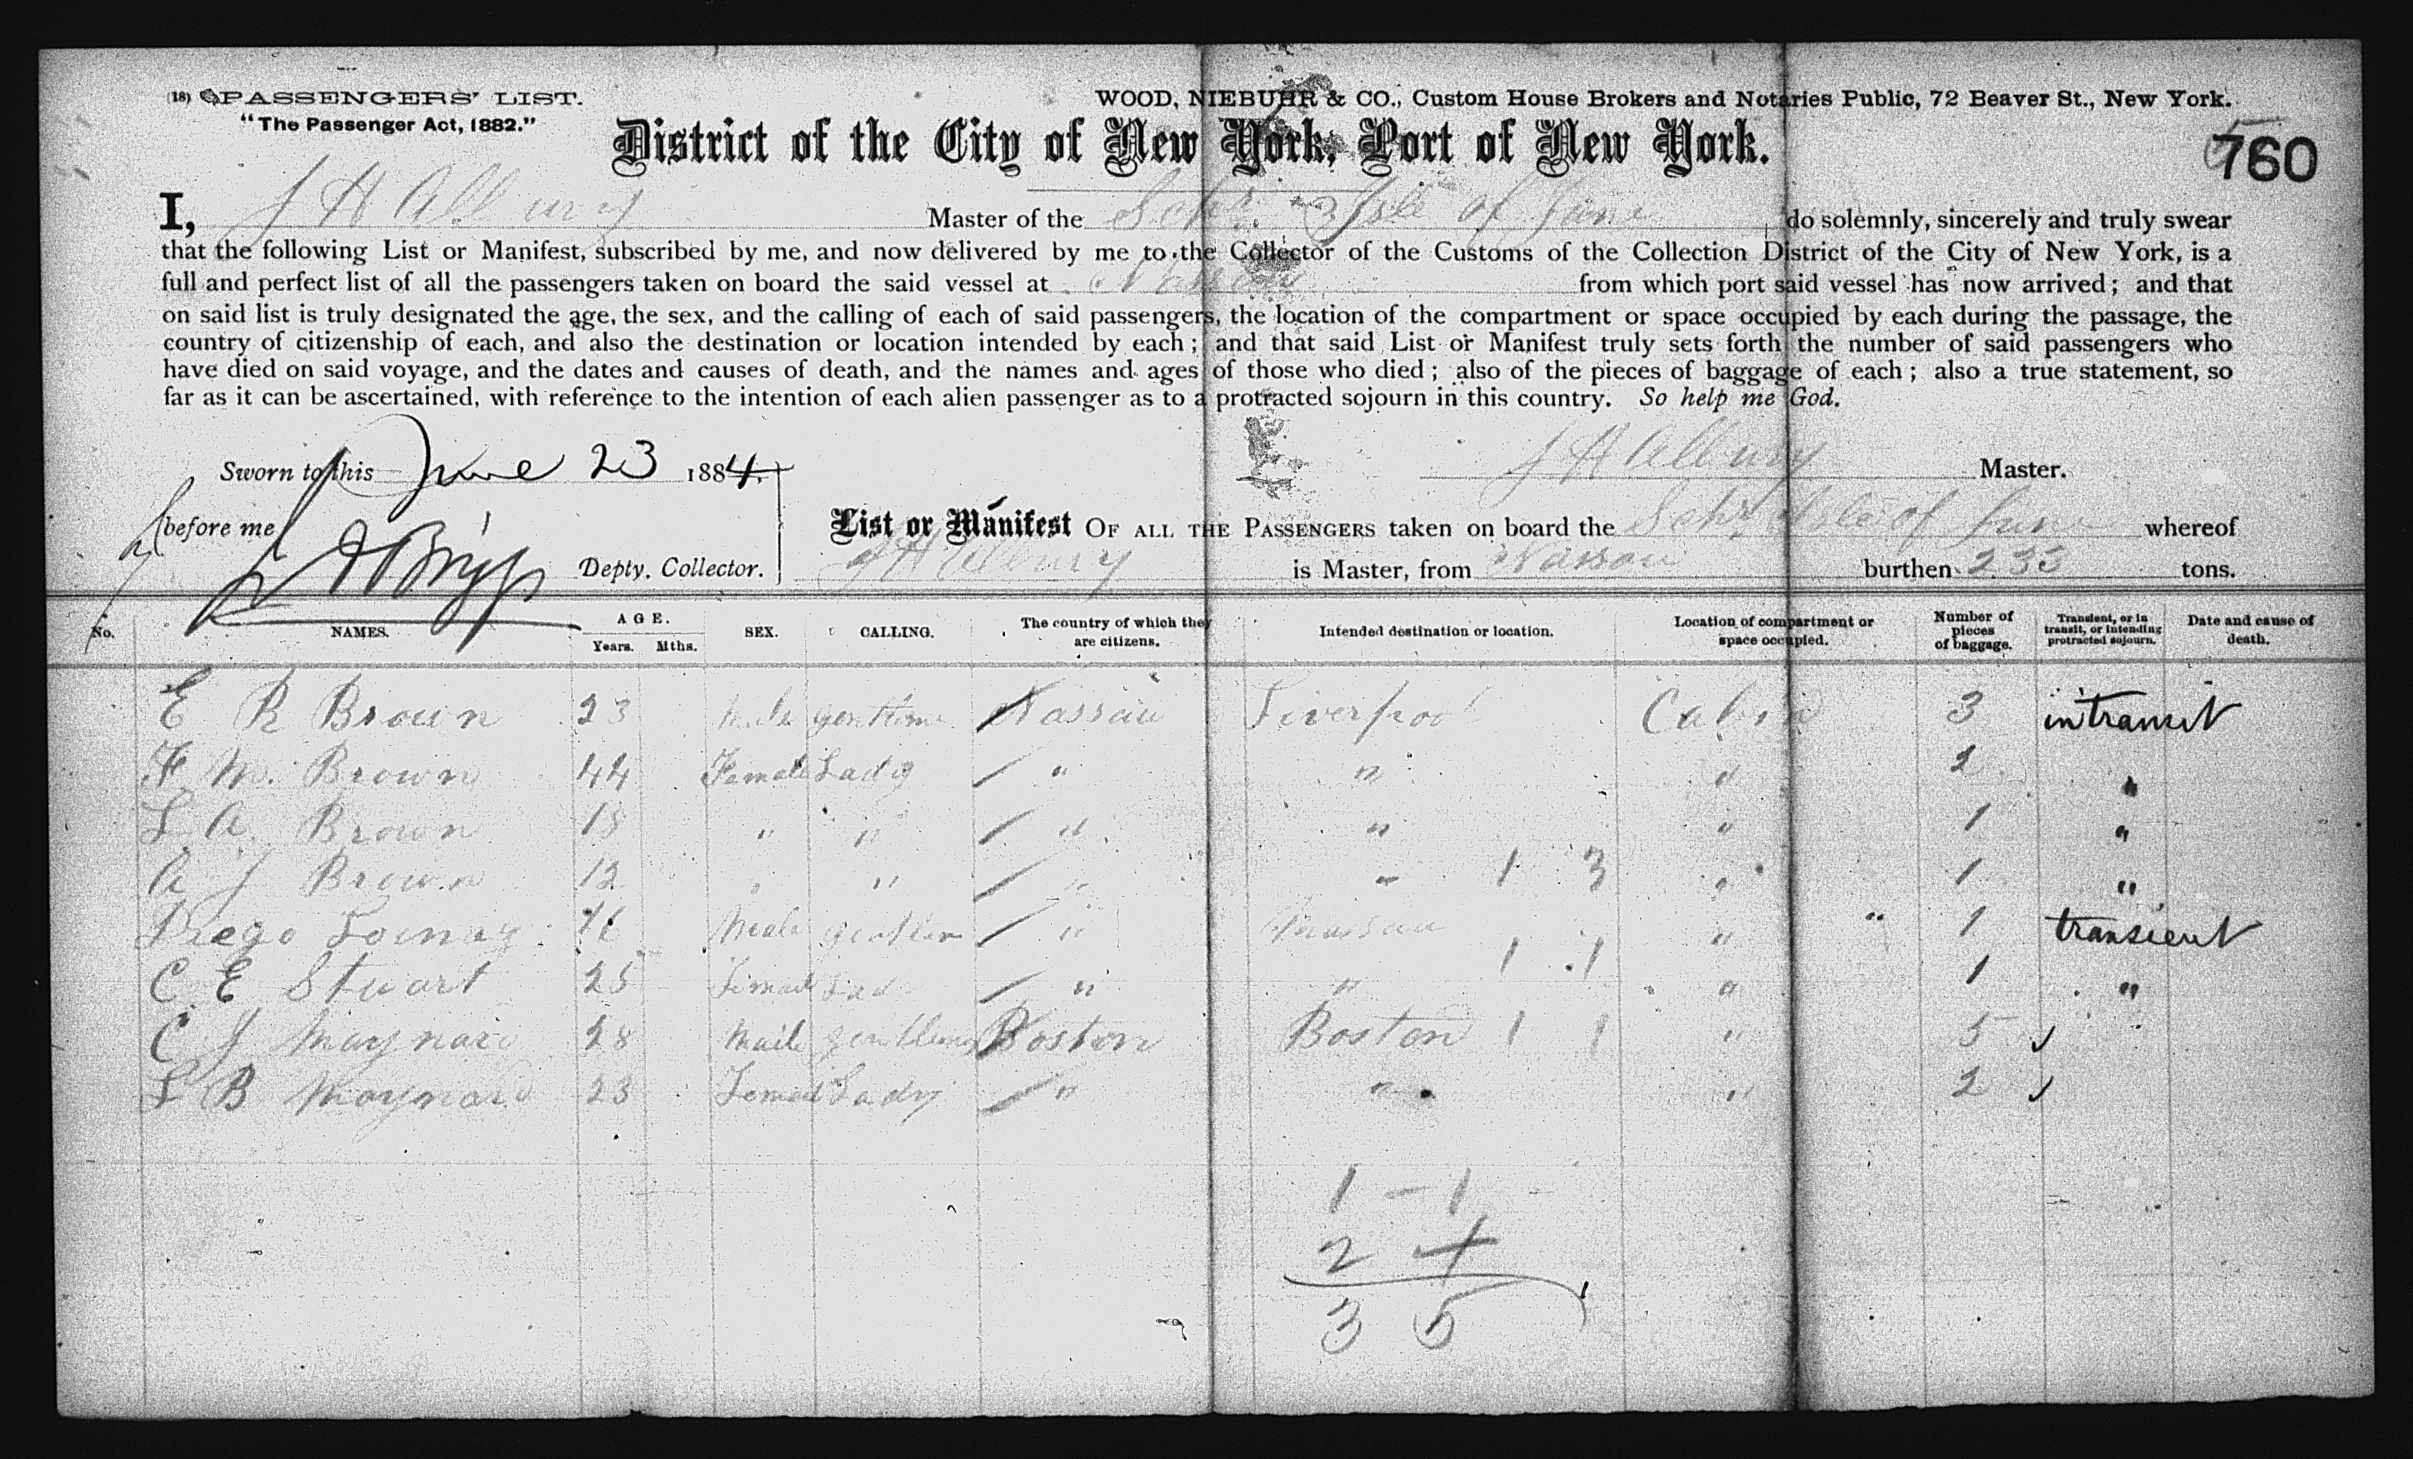 (18) PASSENGERS' LIST.
"The Passenger Act, 1882."
WOOD, NIEBUHR & CO., Custom House Brokers and Notaries Public, 72 Beaver St., New York.
District of the City of New York, Port of New York.
760
I, J H Albury Master of the Schr Isle of June do solemnly, sincerely and truly swear
that the following List or Manifest, subscribed by me, and now delivered by me to the Collector of the Customs of the Collection District of the City of New York, is a
full and perfect list of all the passengers taken on board the said vessel at Nassau from which port said vessel has now arrived; and that
on said list is truly designated the age, the sex, and the calling of each of said passengers, the location of the compartment or space occupied by each during the passage, the
country of citizenship of each, and also the destination or location intended by each; and that said List or Manifest truly sets forth the number of said passengers who
have died on said voyage, and the dates and causes of death, and the names and ages of those who died; also of the pieces of baggage of each; also a true statement, so
far as it can be ascertained, with reference to the intention of each alien passenger as to a protracted sojourn in this country. So help me God.
Sworn to this June 23 1884 J H Albury Master.
before me Briggs Depty. Collector.
List or Manifest OF ALL THE PASSENGERS taken on board the Schr Isle of June whereof
J H Albury is Master, from Nassau burthen 233 tons.
No. NAMES. AGE. Years. Mths. SEX. CALLING. The country of which they are citizens. Intended destination or location. Location of compartment or space occupied. Number of pieces of baggage. Transient, or in transit, or intending protracted sojourn. Date and cause of death.
E R Brown 23 Male Nassau Liverpool Cabin 3 in transit
F M. Brown 44 Female Lady " " " 2 "
L A. Brown 18 " " " " " 1 "
A J Brown 12 " " " " 1 3 " 1 "
Diego 1 transient
C E Stuart 25 Female Lad " " 1 1 " 1 "
C J Maynard 28 Male Boston Boston 1 1 " 5
L B Maynard 23 Female Lady " " " 2
1 - 1
2 4
3 5